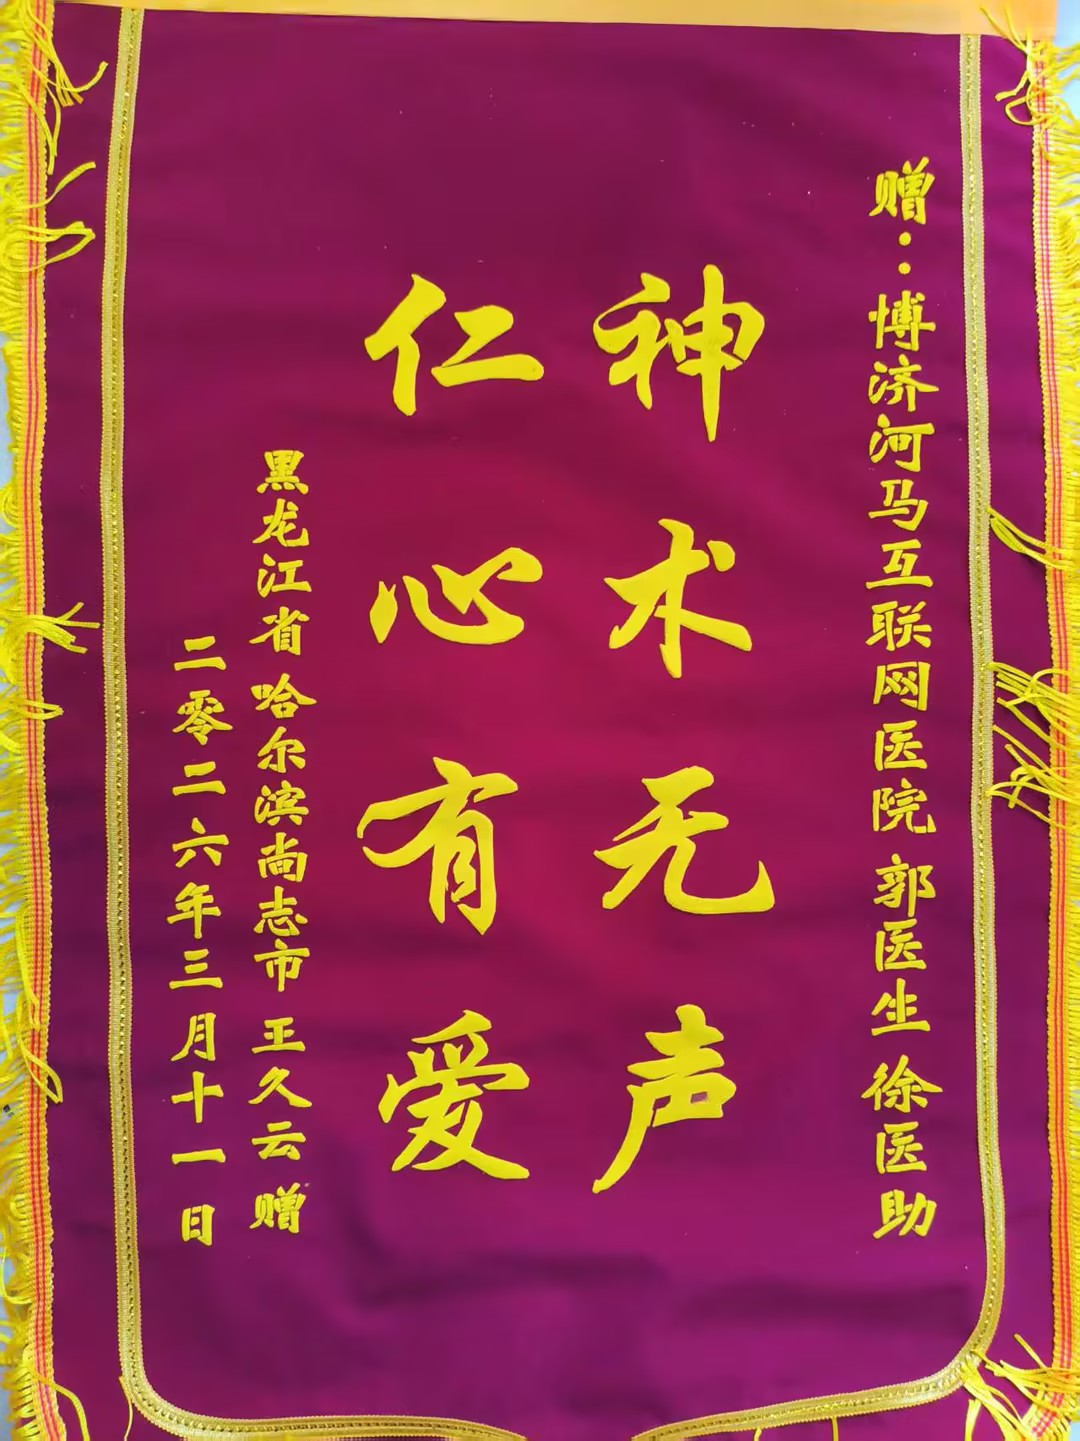 赠：博济河马互联网医院 郭医生 徐医助
神术无声
仁心有爱
黑龙江省 哈尔滨尚志市 王久云 赠
二零二六年三月十一日